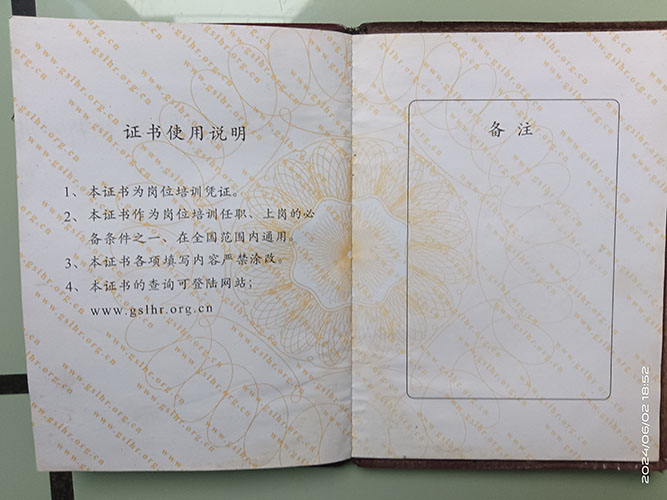 证书使用说明
1、本证书为岗位培训凭证。
2、本证书作为岗位培训任职、上岗的必
备条件之一、在全国范围内通用。
3、本证书各项填写内容严禁涂改。
4、本证书的查询可登陆网站；
www.gslhr.org.cn
备 注
2024/06/02 18:52